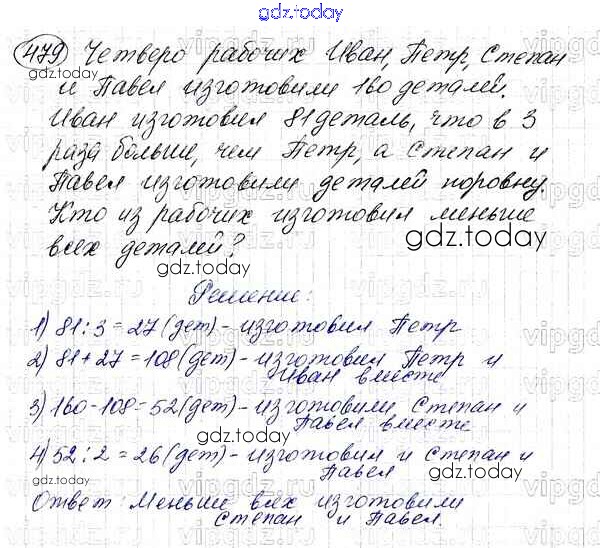 gdz.today
479 Четверо рабочих Иван, Петр, Степан
и Павел изготовили 160 деталей.
Иван изготовил 81 деталь, что в 3
раза больше, чем Петр, а Степан и
Павел изготовили деталей поровну.
Кто из рабочих изготовил меньше
всех деталей?
gdz.today
gdz.today
Решение:
1) 81:3=27(дет)-изготовил Петр
2) 81+27=108(дет)-изготовил Петр и
Иван вместе
gdz.today
3) 160-108=52(дет)-изготовили Степан и
Павел вместе
gdz.today
4) 52:2=26(дет)-изготовил и Степан и
Павел
gdz.today
Ответ: меньше всех изготовили
Степан и Павел.